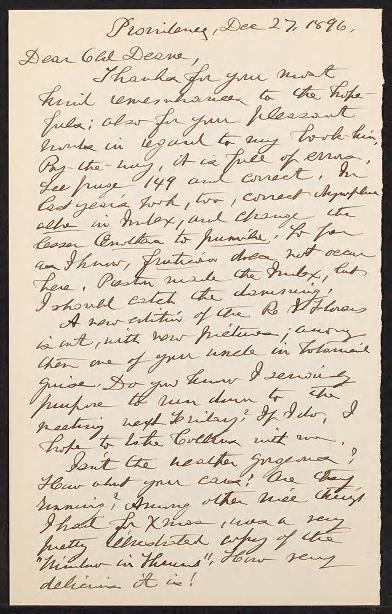 Providence, Dec 27, 1896.
Dear Old Deane,
Thanks for your most
kind remembrances to the hope-
fuls; also for your pleasant
words in regard to my book-kin.
By-the-way, it is full of errors.
See page 149 and correct. In
last years book, too, correct Nymphaea
alba in Index, and change the
lesser to pumila. So far
as I know, fruticosa does not occur
here. Preston made the Index, but
I should catch the damning!
A new edition of the R. I. Flora
is out, with new pictures; among
them one of your uncle in botanical
guise. Do you know I seriously
purpose to run down to the
meeting next Friday? If I do, I
hope to take Collins with me.
Isn't the weather gorgeous?
How about your cans? Are they
running? Among other nice things
I had for Xmas, was a very
pretty illustrated copy of the
"Window in Thrums". How very
delicious it is!